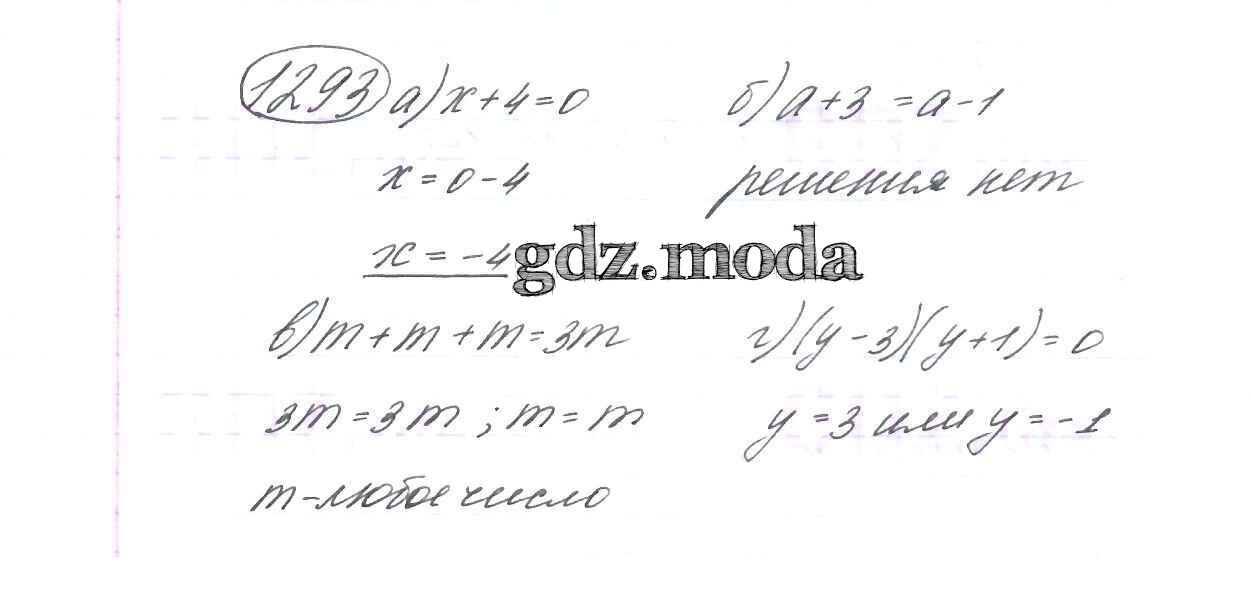 1293 а) x+4=0
x=0-4
x=-4
б) a+3=a-1
решения нет
gdz.moda
в) m+m+m=3m
3m=3m; m=m
m-любое число
г) (y-3)(y+1)=0
y=3 или y=-1